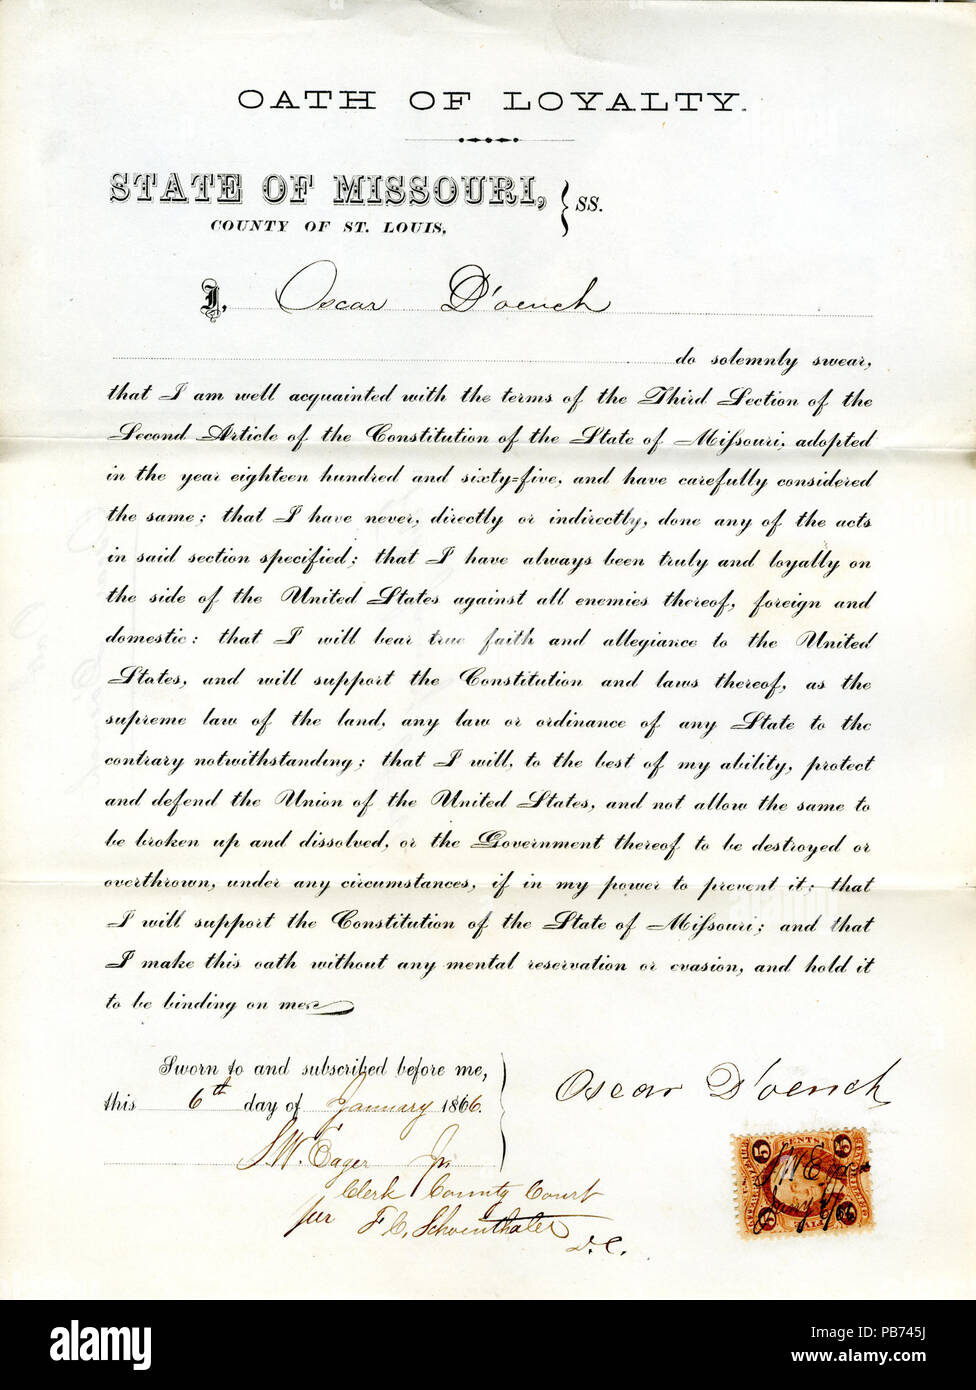 OATH OF LOYALTY.
STATE OF MISSOURI, } SS.
COUNTY OF ST. LOUIS,
I, Oscar D'oench
do solemnly swear,
that I am well acquainted with the terms of the Third Section of the
Second Article of the Constitution of the State of Missouri, adopted
in the year eighteen hundred and sixty=five, and have carefully considered
the same; that I have never, directly or indirectly, done any of the acts
in said section specified; that I have always been truly and loyally on
the side of the United States against all enemies thereof, foreign and
domestic: that I will bear true faith and allegiance to the United
States, and will support the Constitution and laws thereof, as the
supreme law of the land, any law or ordinance of any State to the
contrary notwithstanding; that I will, to the best of my ability, protect
and defend the Union of the United States, and not allow the same to
be broken up and dissolved, or the Government thereof to be destroyed or
overthrown, under any circumstances, if in my power to prevent it; that
I will support the Constitution of the State of Missouri; and that
I make this oath without any mental reservation or evasion, and hold it
to be binding on me.
Sworn to and subscribed before me,
this 6th day of January 1866.
Oscar D'oench
S.W. Eager Jr.
Clerk County Court
per F.C. Schoenthaler
D.C.
5 CENTS 5
SWE
Jany 6/66
alamy
Image ID: PB745J
www.alamy.com